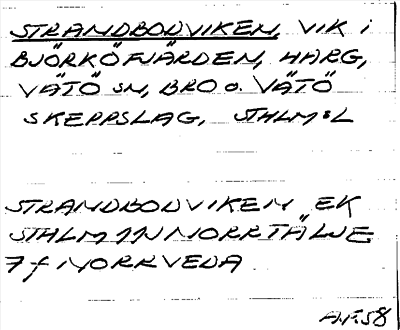 STRANDBODVIKEN, VIK i
BJÖRKÖFJÄRDEN, HARG,
VÄTÖ SN, BRO o. VÄTÖ
SKEPPSLAG, STHLM:L
STRANDBODVIKEN EK
STHLM 11N NORRTÄLJE
7f NORRVEDA
A.F.58